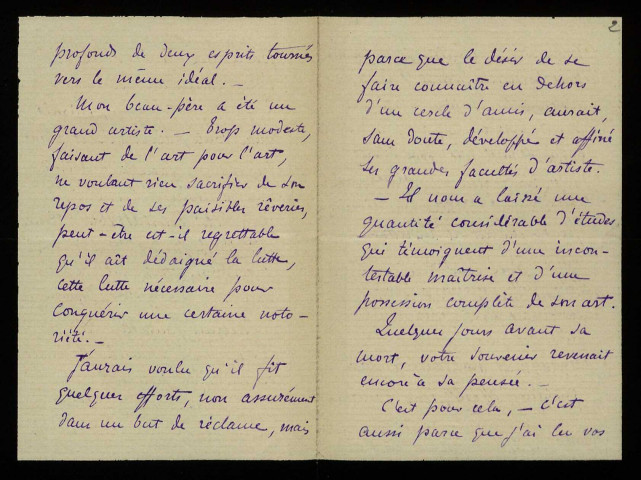 profonds de deux esprits tournés
vers le même idéal. —
Mon beau-père a été un
grand artiste. — Trop modeste,
faisant de l'art pour l'art,
ne voulant rien sacrifier de son
repos et de ses paisibles rêveries,
peut-être est-il regrettable
qu'il aît dédaigné la lutte,
cette lutte nécessaire pour
conquérir une certaine noto-
riété. —
J'aurais voulu qu'il fit
quelques efforts, non assurément
dans un but de réclame, mais
2
parce que le désir de se
faire connaître en dehors
d'un cercle d'amis, aurait,
sans doute, développé et affiné
ses grandes facultés d'artiste.
— Il nous a laissé une
quantité considérable d'études,
qui témoignent d'une incon-
testable maîtrise et d'une
possession complète de son art.
Quelques jours avant sa
mort, votre souvenir revenait
encore à sa pensée. —
C'est pour cela, — c'est
aussi parce que j'ai lu vos